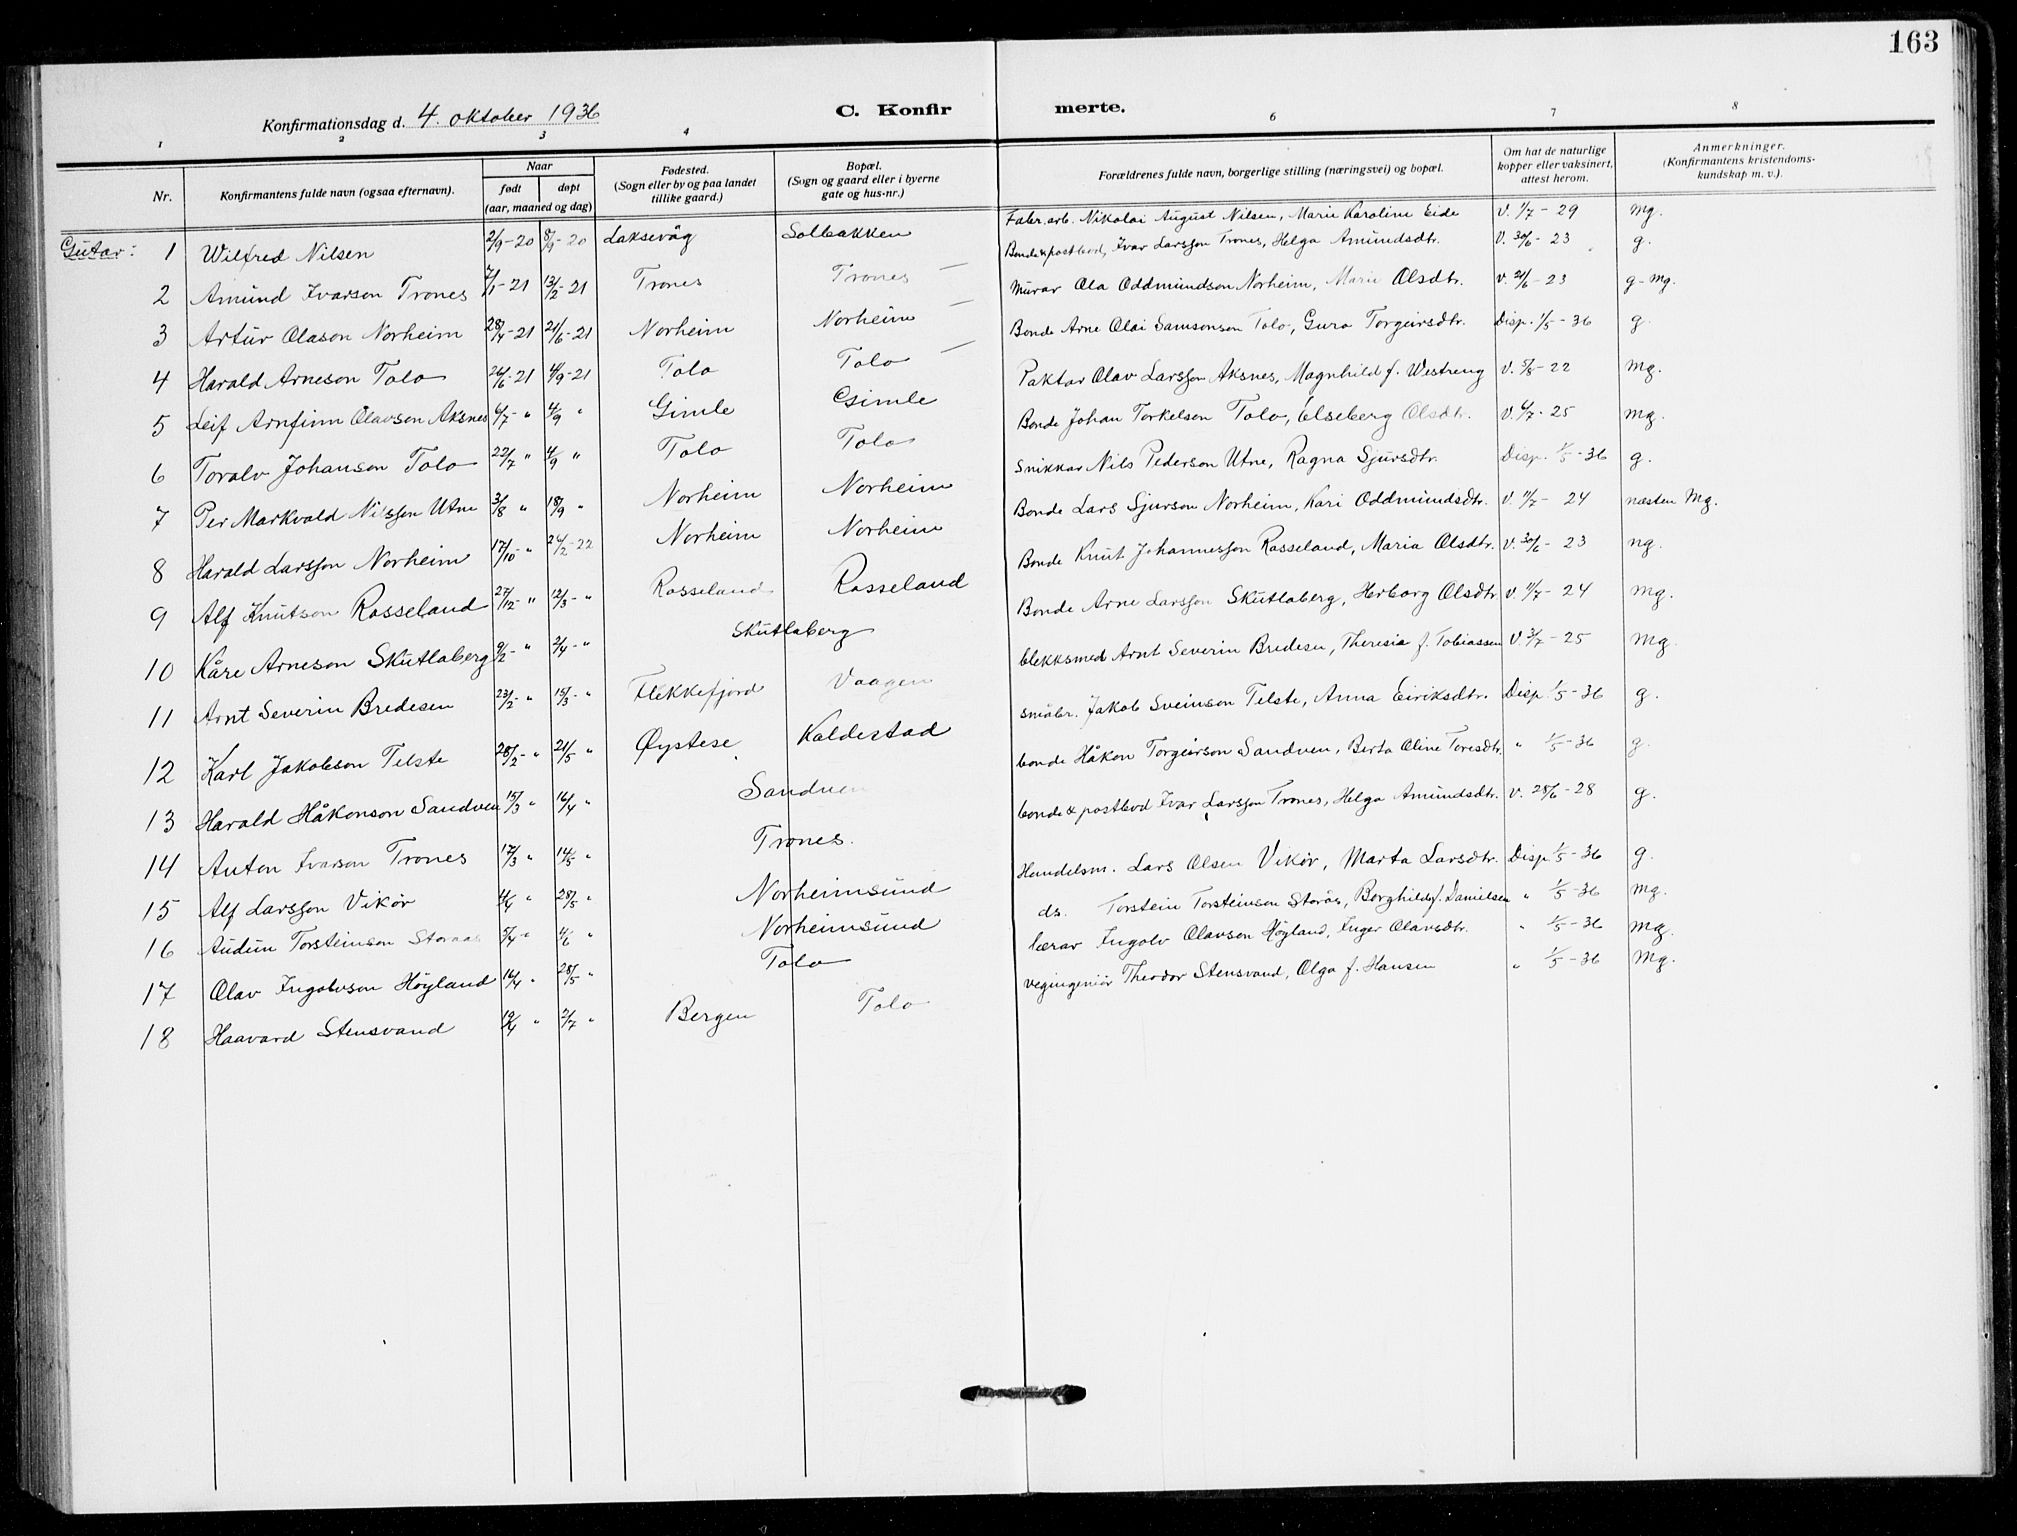 163
Konfirmationsdag d. 4. oktober 1936
C. Konfir merte.
1 2 3 4 6 7 8
Nr. | Konfirmantens fulde navn (ogsaa efternavn). | Naar født døpt (aar, maaned og dag) | Fødested. (Sogn eller by og paa landet tillike gaard.) | Bopæl. (Sogn og gaard eller i byerne gate og hus-nr.) | Forældrenes fulde navn, borgerlige stilling (næringsvei) og bopæl. | Om hat de naturlige kopper eller vaksinert, attest herom. | Anmerkninger. (Konfirmantens kristendomskundskap m. v.).
Gutar: 1 Wilfred Nilsen 2/9-20 8/9-20 Laksevåg Solbakken Fabr. arb. Nikolai August Nilsen, Marie Karoline Eide V. 1/7-29 Mg.
2 Amund Ivarson Trones 7/1-21 13/2-21 Trones Trones — Bonde & postbod, Ivar Larsson Trones, Helga Amundsdtr. V. 30/6-23 g.
3 Artur Olason Norheim 28/4-21 21/6-21 Norheim Norheim — Murar Ola Oddmundson Norheim, Marie Olsdtr. V. 21/6-23 g-Mg.
4 Harald Arneson Tolo 26/6-21 4/9-21 Tolo Tolo — Bonde Arne Olai Samsonson Tolo, Guro Torgeirsdtr. Disp. 1/5-36 g.
5 Leif Arnfinn Olavson Aksnes 6/7-" 4/9 " Gimle Gimle Paktar Olav Larsson Aksnes, Magnhild f. Westreng V. 5/8-22 Mg.
6 Toralv Johanson Tolo 22/7 " 4/9 " Tolo Tolo Bonde Johan Torkelson Tolo, Elseberg Olsdtr. V. 6/7-25 Mg.
7 Per Markvald Nilsson Utne 3/8 " 18/9 " Norheim Norheim Snikkar Nils Pederson Utne, Ragna Sjursdtr. Disp. 1/5-36 g.
8 Harald Larsson Norheim 17/10-" 24/2-22 Norheim Norheim Bonde Lars Sjurson Norheim, Kari Oddmundsdtr. V. 11/7-24 næsten Mg.
9 Alf Knutson Rosseland 27/12-" 12/3-" Rosseland Rosseland Bonde Knut Johannesson Rosseland, Maria Olsdtr. V. 30/6-23 ng.
10 Kåre Arneson Skutlaberg 9/2-" 2/4-" Skutlaberg Bonde Arne Larsson Skutlaberg, Herborg Olsdtr. V. 11/7-24 Mg.
11 Arnt Severin Bredesen 23/2-" 15/3-" Flekkefjord Vaagen blekksmed Arnt Severin Bredesen, Theresia f. Tobiassen V. 3/7-25 Mg.
12 Karl Jakobson Telste 28/2-" 21/5 " Øystese Kaldestad småbr. Jakob Sveinson Telste, Anna Eiriksdtr. Disp 1/5-36 g.
13 Harald Håkonson Sandven 15/3 " 16/4 " Sandven bonde Håkon Torgeirson Sandven, Berta Oline Toresdtr. " 1/5-36 g.
14 Anton Ivarson Trones 17/3 " 14/5 " Trones. bonde & postbod Ivar Larsson Trones, Helga Amundsdtr. V. 28/6-28 g.
15 Alf Larsson Vikør 4/4 " 28/5 " Norheimsund Handelsm. Lars Olsen Vikør, Marta Larsdtr. Disp 1/5-36 g.
16 Audun Torsteinson Storaas 5/4-" 4/6 " Norheimsund ds. Torstein Torsteinson Storås, Borghild f. Danielsen " 1/5-36 Mg.
17 Olav Ingolvson Höyland 16/4 " 28/5 " Tolo lærar Ingolv Olavson Höyland, Inger Olavsdtr. " 1/5-36 Mg.
18 Haavard Stensvand 19/4 " 2/7 " Bergen Tolo vegingeniör Theodor Stensvand, Olga f. Hansen " 1/5-36 Mg.